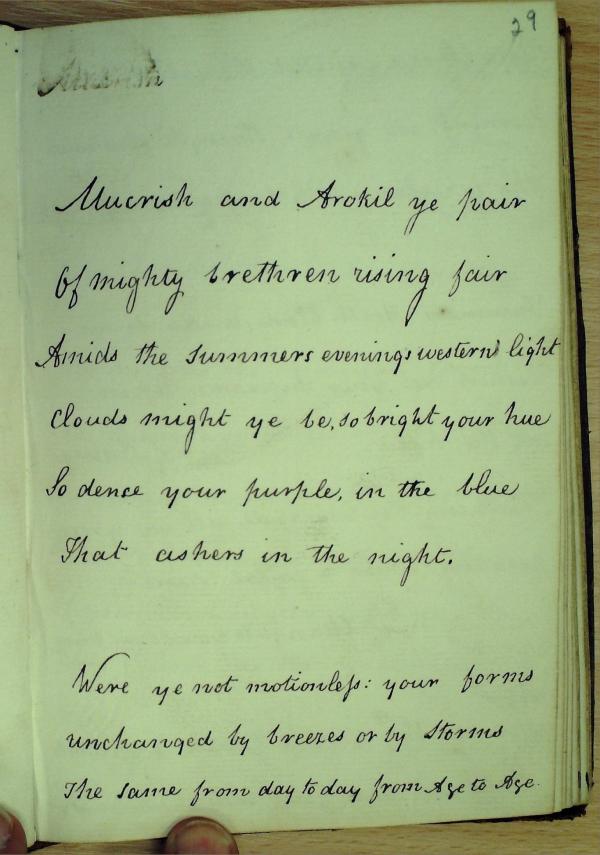 29
Mucrish and Arokil ye pair
Of mighty brethren rising fair
Amids the summers evenings western light
Clouds might ye be, so bright your hue
So dense your purple, in the blue
That ashers in the night.
Were ye not motionless: your forms
unchanged by breezes or by storms
The same from day to day from Age to Age.